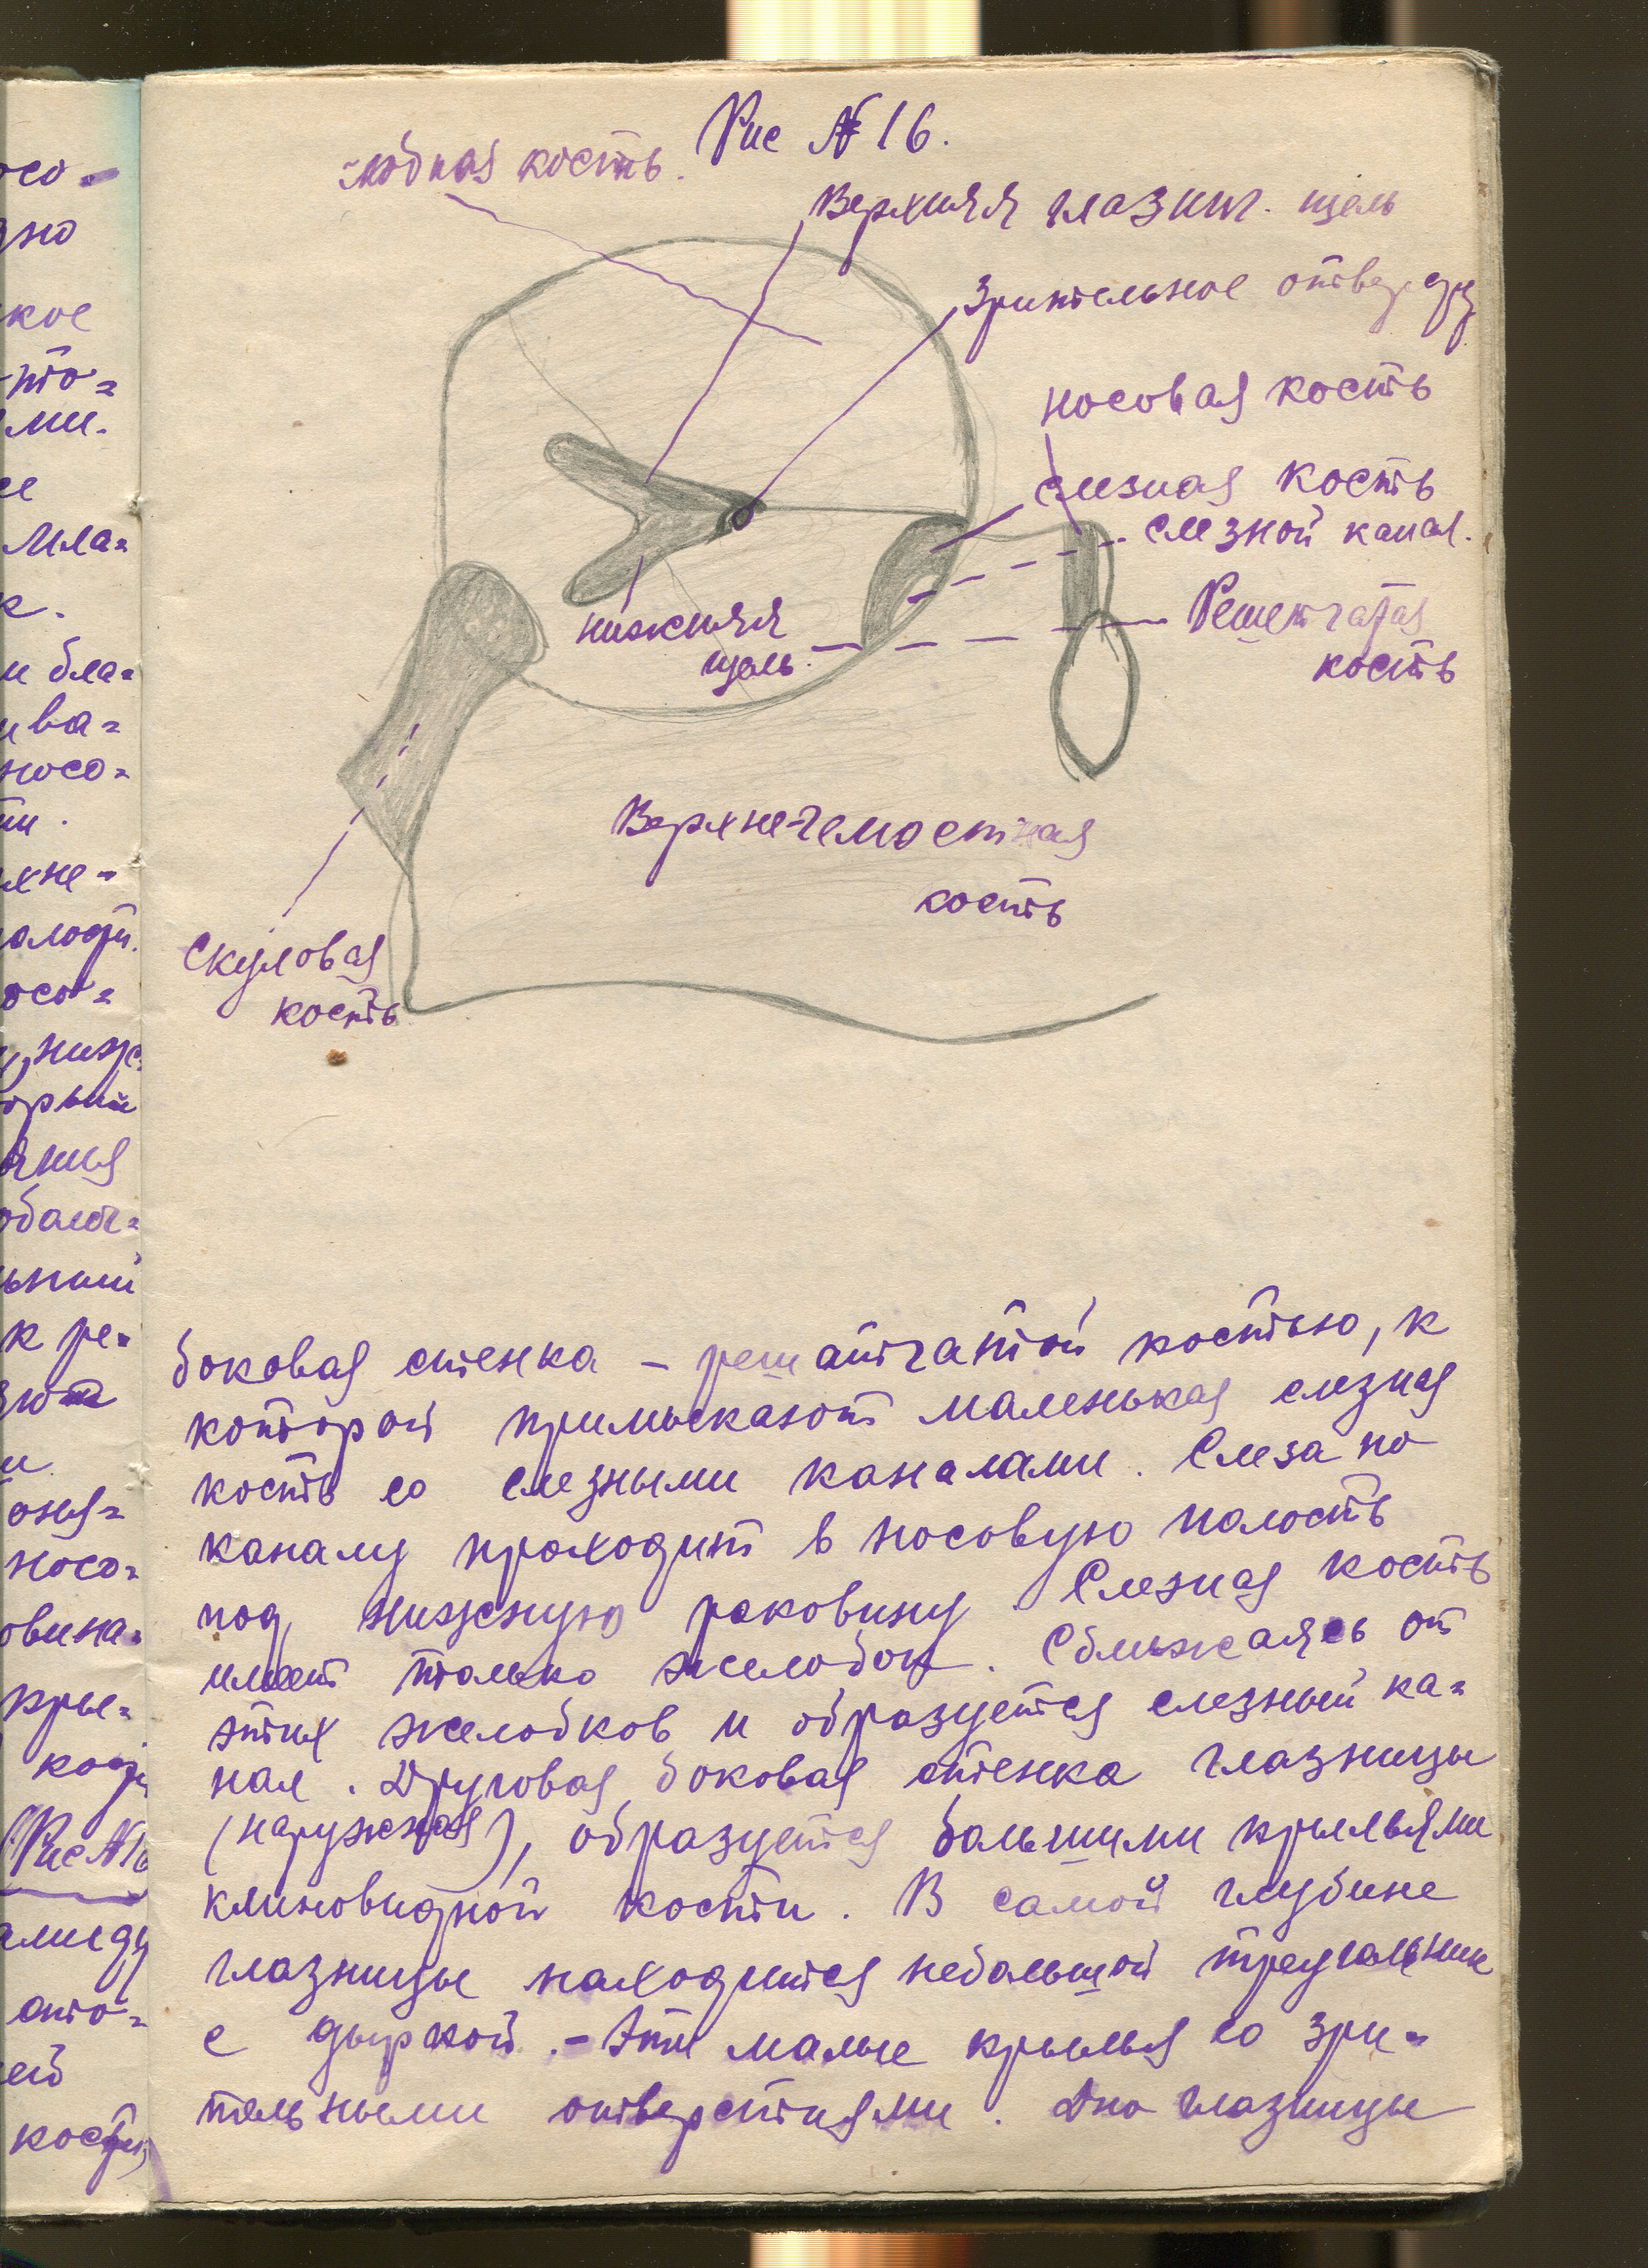 Рис № 16.
лобная кость.
Верхняя глазнич. щель
Зрительное отверсти
носовая кость
слезная кость
слезной канал.
Решетчатая
кость
нижняя
щель
Верхне-челюстная
кость
Скуловая
кость
боковая стенка – решатчатой костью, к
которой примыскают маленькая слезная
кость со слезными каналами. Слеза по
каналу проходит в носовую полость
под нижнюю раковину. Слезная кость
имеет только желобок. Сближаясь от
этих желобков и образуется слезный ка=
нал. Друговая боковая стенка глазницы
(наружная), образуется большими крыльями
клиновидной кости. В самой глубине
глазницы находится небольшой треугольник
с дыркой. - Это малые крылья со зри=
тельными отверстиями. Дно глазницы
осо-
зно
кое
-то=
ми.
се
мла=
к.
и бла=
ива=
носо=
ти.
хне-
алости.
осо=
ниж
орый
ания
обами=
ьный
к ре=
и
оня=
носо=
овина=
кры=
кост
(Рис №16
ото=
ей
кости,